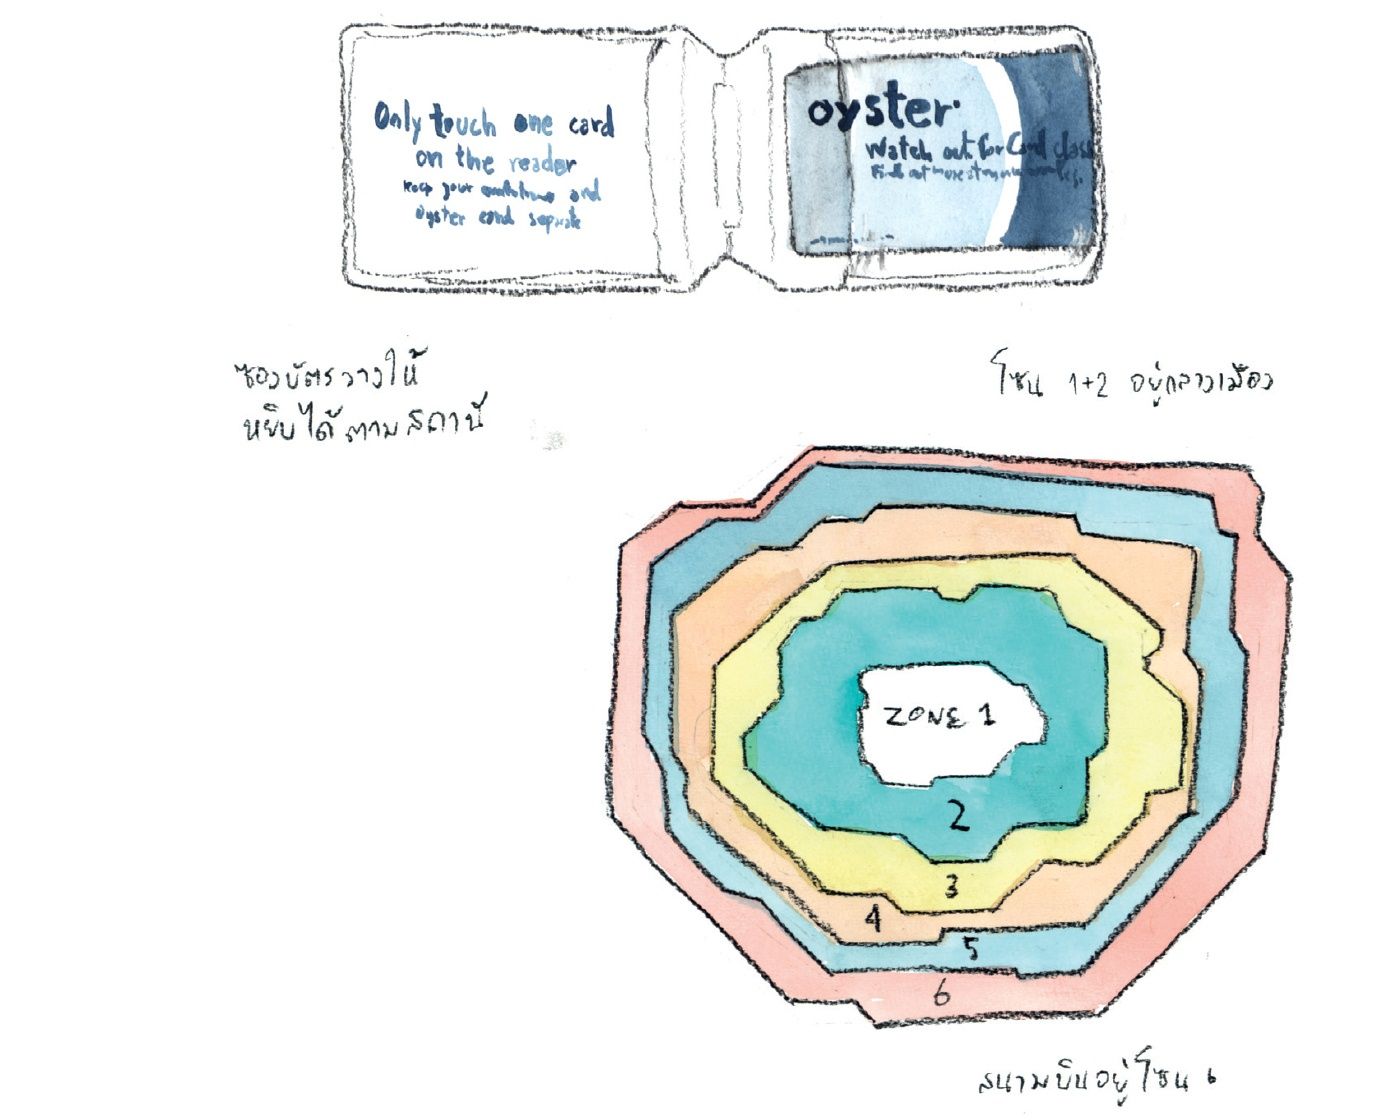 Only touch one card
on the reader
keep your and
oyster card separate
oyster
Watch out for Card clash
Find out more at
ซองบัตรวางให้
หยิบได้ตามสถานี
โซน 1+2 อยู่กลางเมือง
ZONE 1
2
3
4
5
6
สนามบินอยู่โซน 6